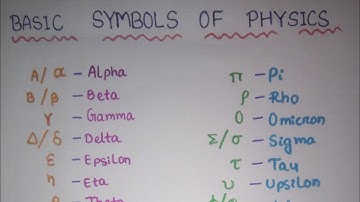 BASIC SYMBOLS OF PHYSICS
A/α – Alpha
B/β – Beta
γ – Gamma
Δ/δ – Delta
ε – Epsilon
η – Eta
Theta
π – Pi
ρ – Rho
O – Omicron
Σ/σ – Sigma
τ – Tau
υ – Upsilon